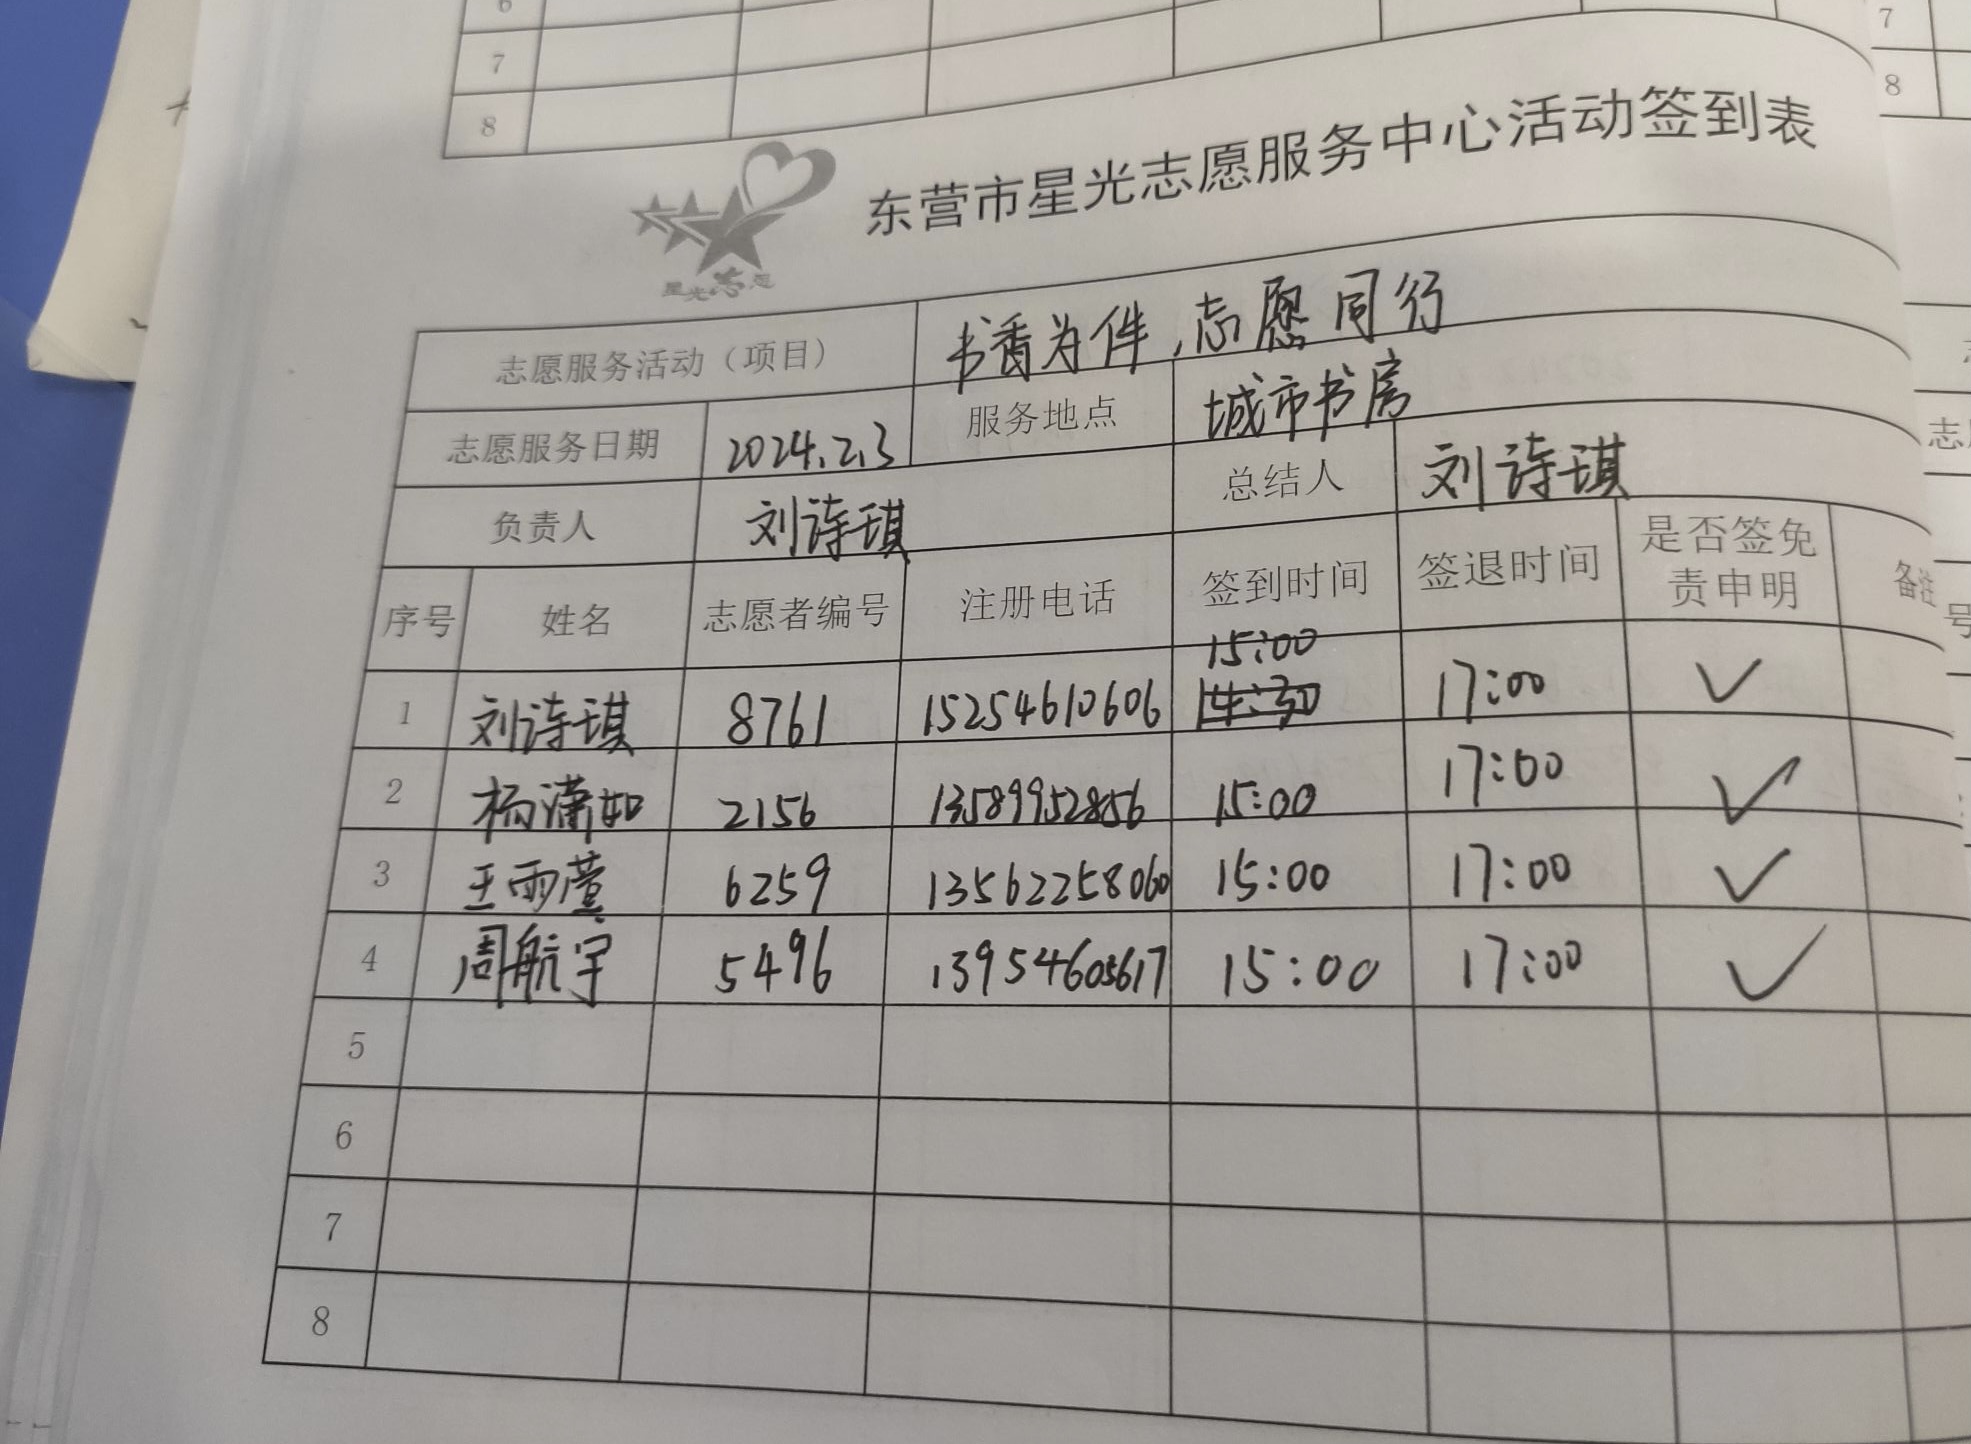 6
7
8
7
8
东营市星光志愿服务中心活动签到表
星光志愿
志愿服务活动（项目） 书香为伴，志愿同行
志愿服务日期 2024.2.3 服务地点 城市书房
负责人 刘诗琪 总结人 刘诗琪
序号 姓名 志愿者编号 注册电话 签到时间 签退时间 是否签免责申明 备注
1 刘诗琪 8761 15254610606 15:00 14:30 17:00 ✓
2 杨潇如 2156 13589952856 15:00 17:00 ✓
3 王雨萱 6259 13562258060 15:00 17:00 ✓
4 周航宇 5496 13954605617 15:00 17:00 ✓
5
6
7
8
志
号